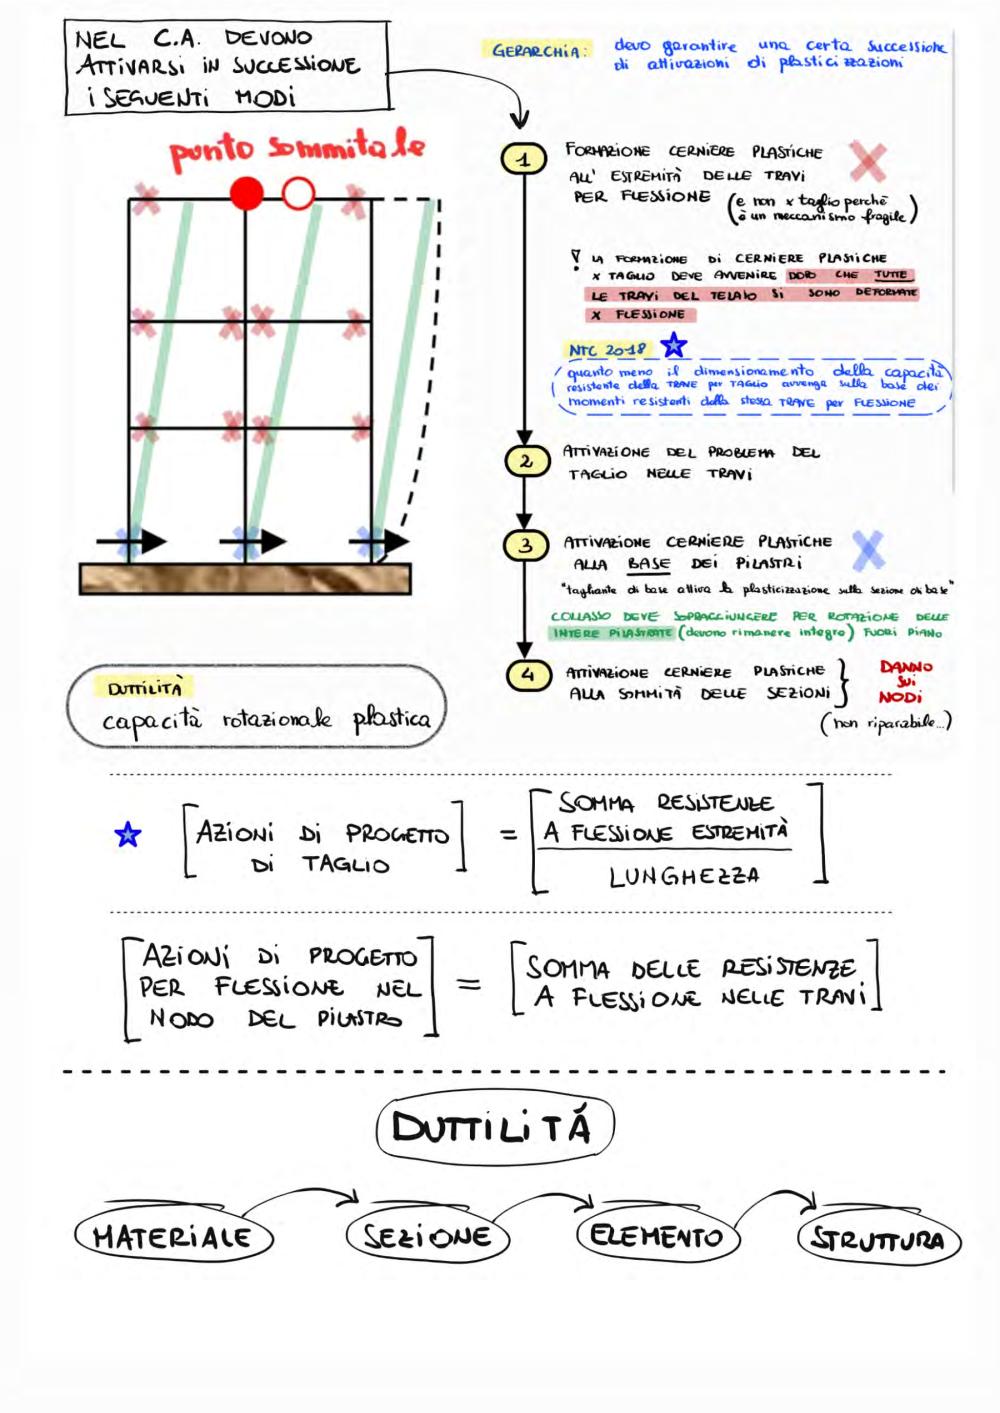 NEL C.A. DEVONO
ATTIVARSI IN SUCCESSIONE
I SEGUENTI MODI
GERARCHIA: devo garantire una certa successione
di attivazioni di plasticizzazioni
punto sommitale
1 FORMAZIONE CERNIERE PLASTICHE
ALL' ESTREMITÀ DELLE TRAVI
PER FLESSIONE (e non x taglio perchè
è un meccanismo fragile)
! LA FORMAZIONE DI CERNIERE PLASTICHE
X TAGLIO DEVE AVVENIRE DOPO CHE TUTTE
LE TRAVI DEL TELAIO SI SONO DEFORMATE
X FLESSIONE
NTC 2018
quanto meno il dimensionamento della capacità
resistente della TRAVE per TAGLIO avvenga sulla base dei
momenti resistenti della stessa TRAVE per FLESSIONE
2 ATTIVAZIONE DEL PROBLEMA DEL
TAGLIO NELLE TRAVI
3 ATTIVAZIONE CERNIERE PLASTICHE
ALLA BASE DEI PILASTRI
"tagliante di base attiva la plasticizzazione sulla sezione di base"
COLLASSO DEVE SOPRAGGIUNGERE PER ROTAZIONE DELLE
INTERE PILASTRATE (devono rimanere integre) FUORI PIANO
4 ATTIVAZIONE CERNIERE PLASTICHE
ALLA SOMMITÀ DELLE SEZIONI
DANNO
SUI
NODI
(non riparabile...)
DUTTILITÀ
capacità rotazionale plastica
[AZIONI DI PROGETTO
DI TAGLIO] = [SOMMA RESISTENZE
A FLESSIONE ESTREMITÀ
LUNGHEZZA]
[AZIONI DI PROGETTO
PER FLESSIONE NEL
NODO DEL PILASTRO] = [SOMMA DELLE RESISTENZE
A FLESSIONE NELLE TRAVI]
DUTTILITÁ
MATERIALE SEZIONE ELEMENTO STRUTTURA